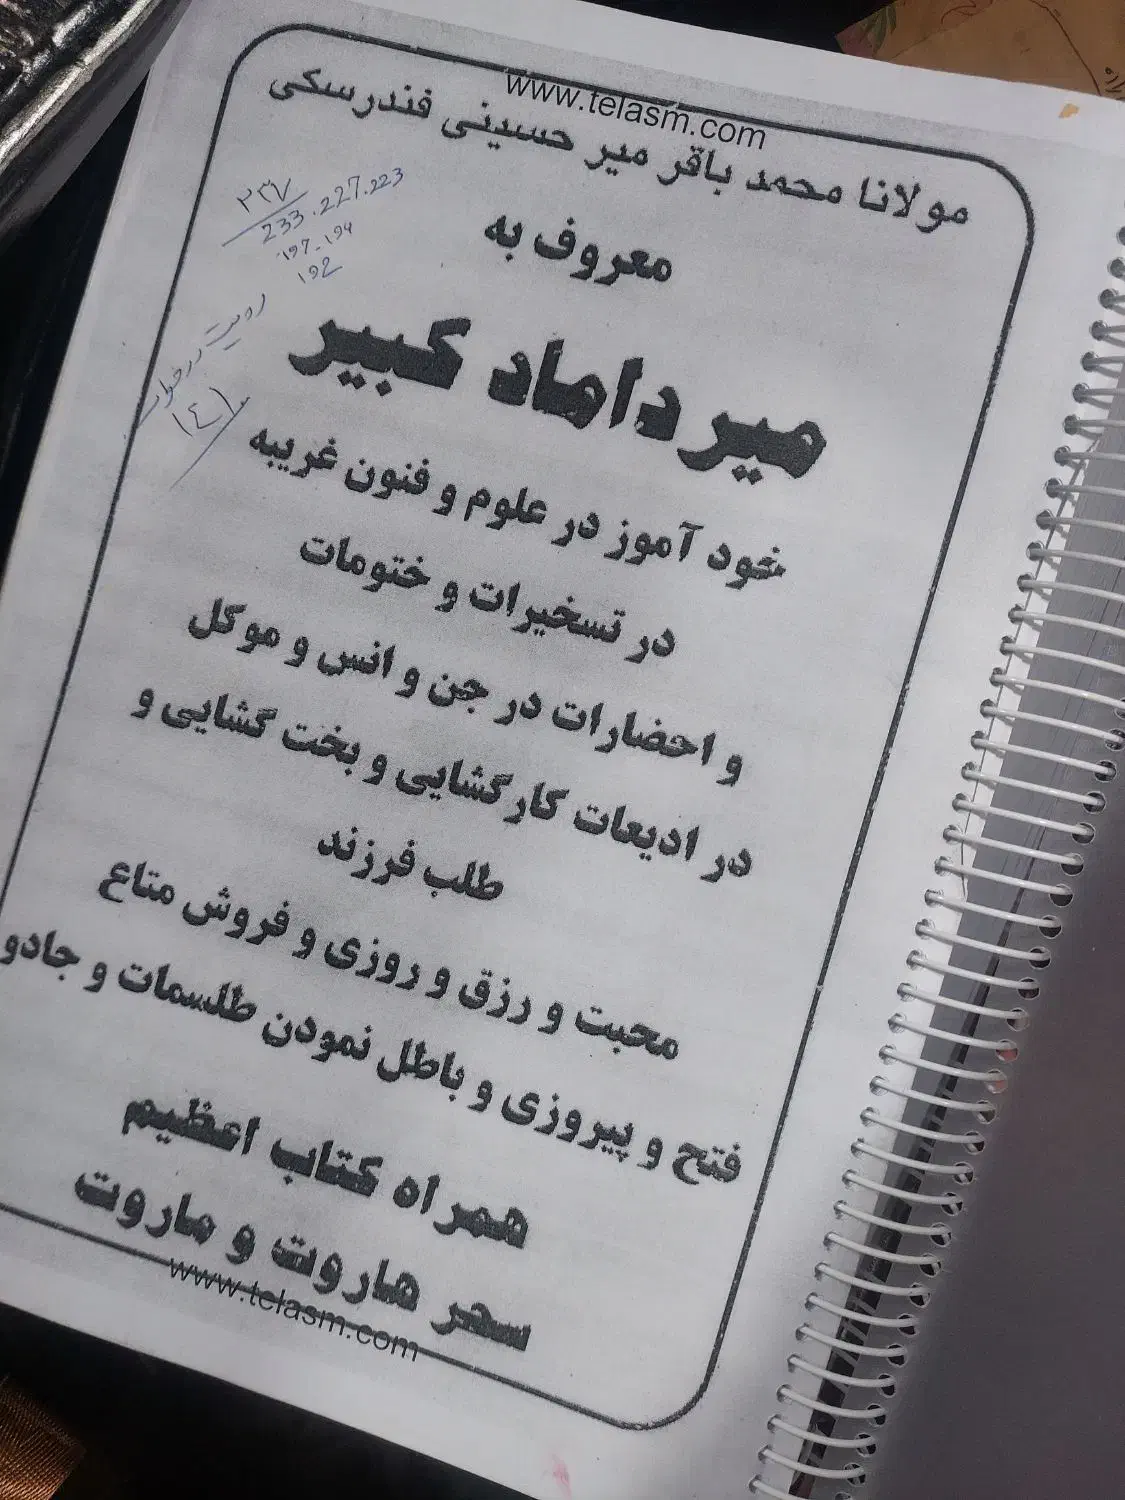 www.telasm.com
مولانا محمد باقر میر حسینی فندرسکی
معروف به
۲۳۷
233.227.223
197-194
192
میر داماد کبیر
رویت در خواب
۱۴۱
خود آموز در علوم و فنون غریبه
در تسخیرات و ختومات
و احضارات در جن و انس و موکل
در ادیعات کارگشایی و بخت گشایی و
طلب فرزند
محبت و رزق و روزی و فروش متاع
فتح و پیروزی و باطل نمودن طلسمات و جادو
همراه کتاب اعظیم
سحر هاروت و ماروت
www.telasm.com